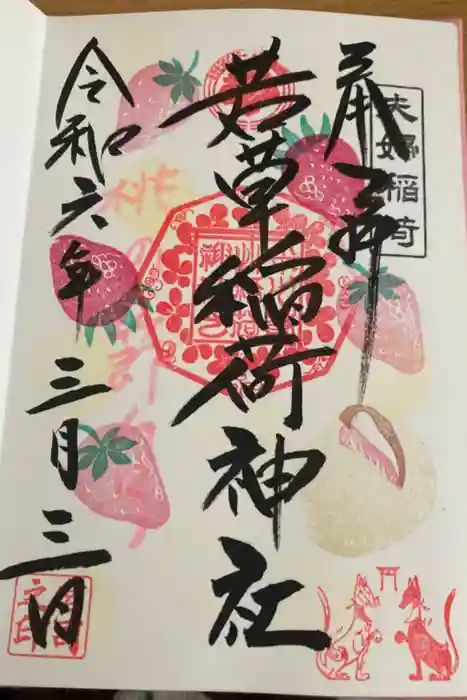 奉拝
夫婦稲荷
若草稲荷神社
桃の節句
令和六年三月三日